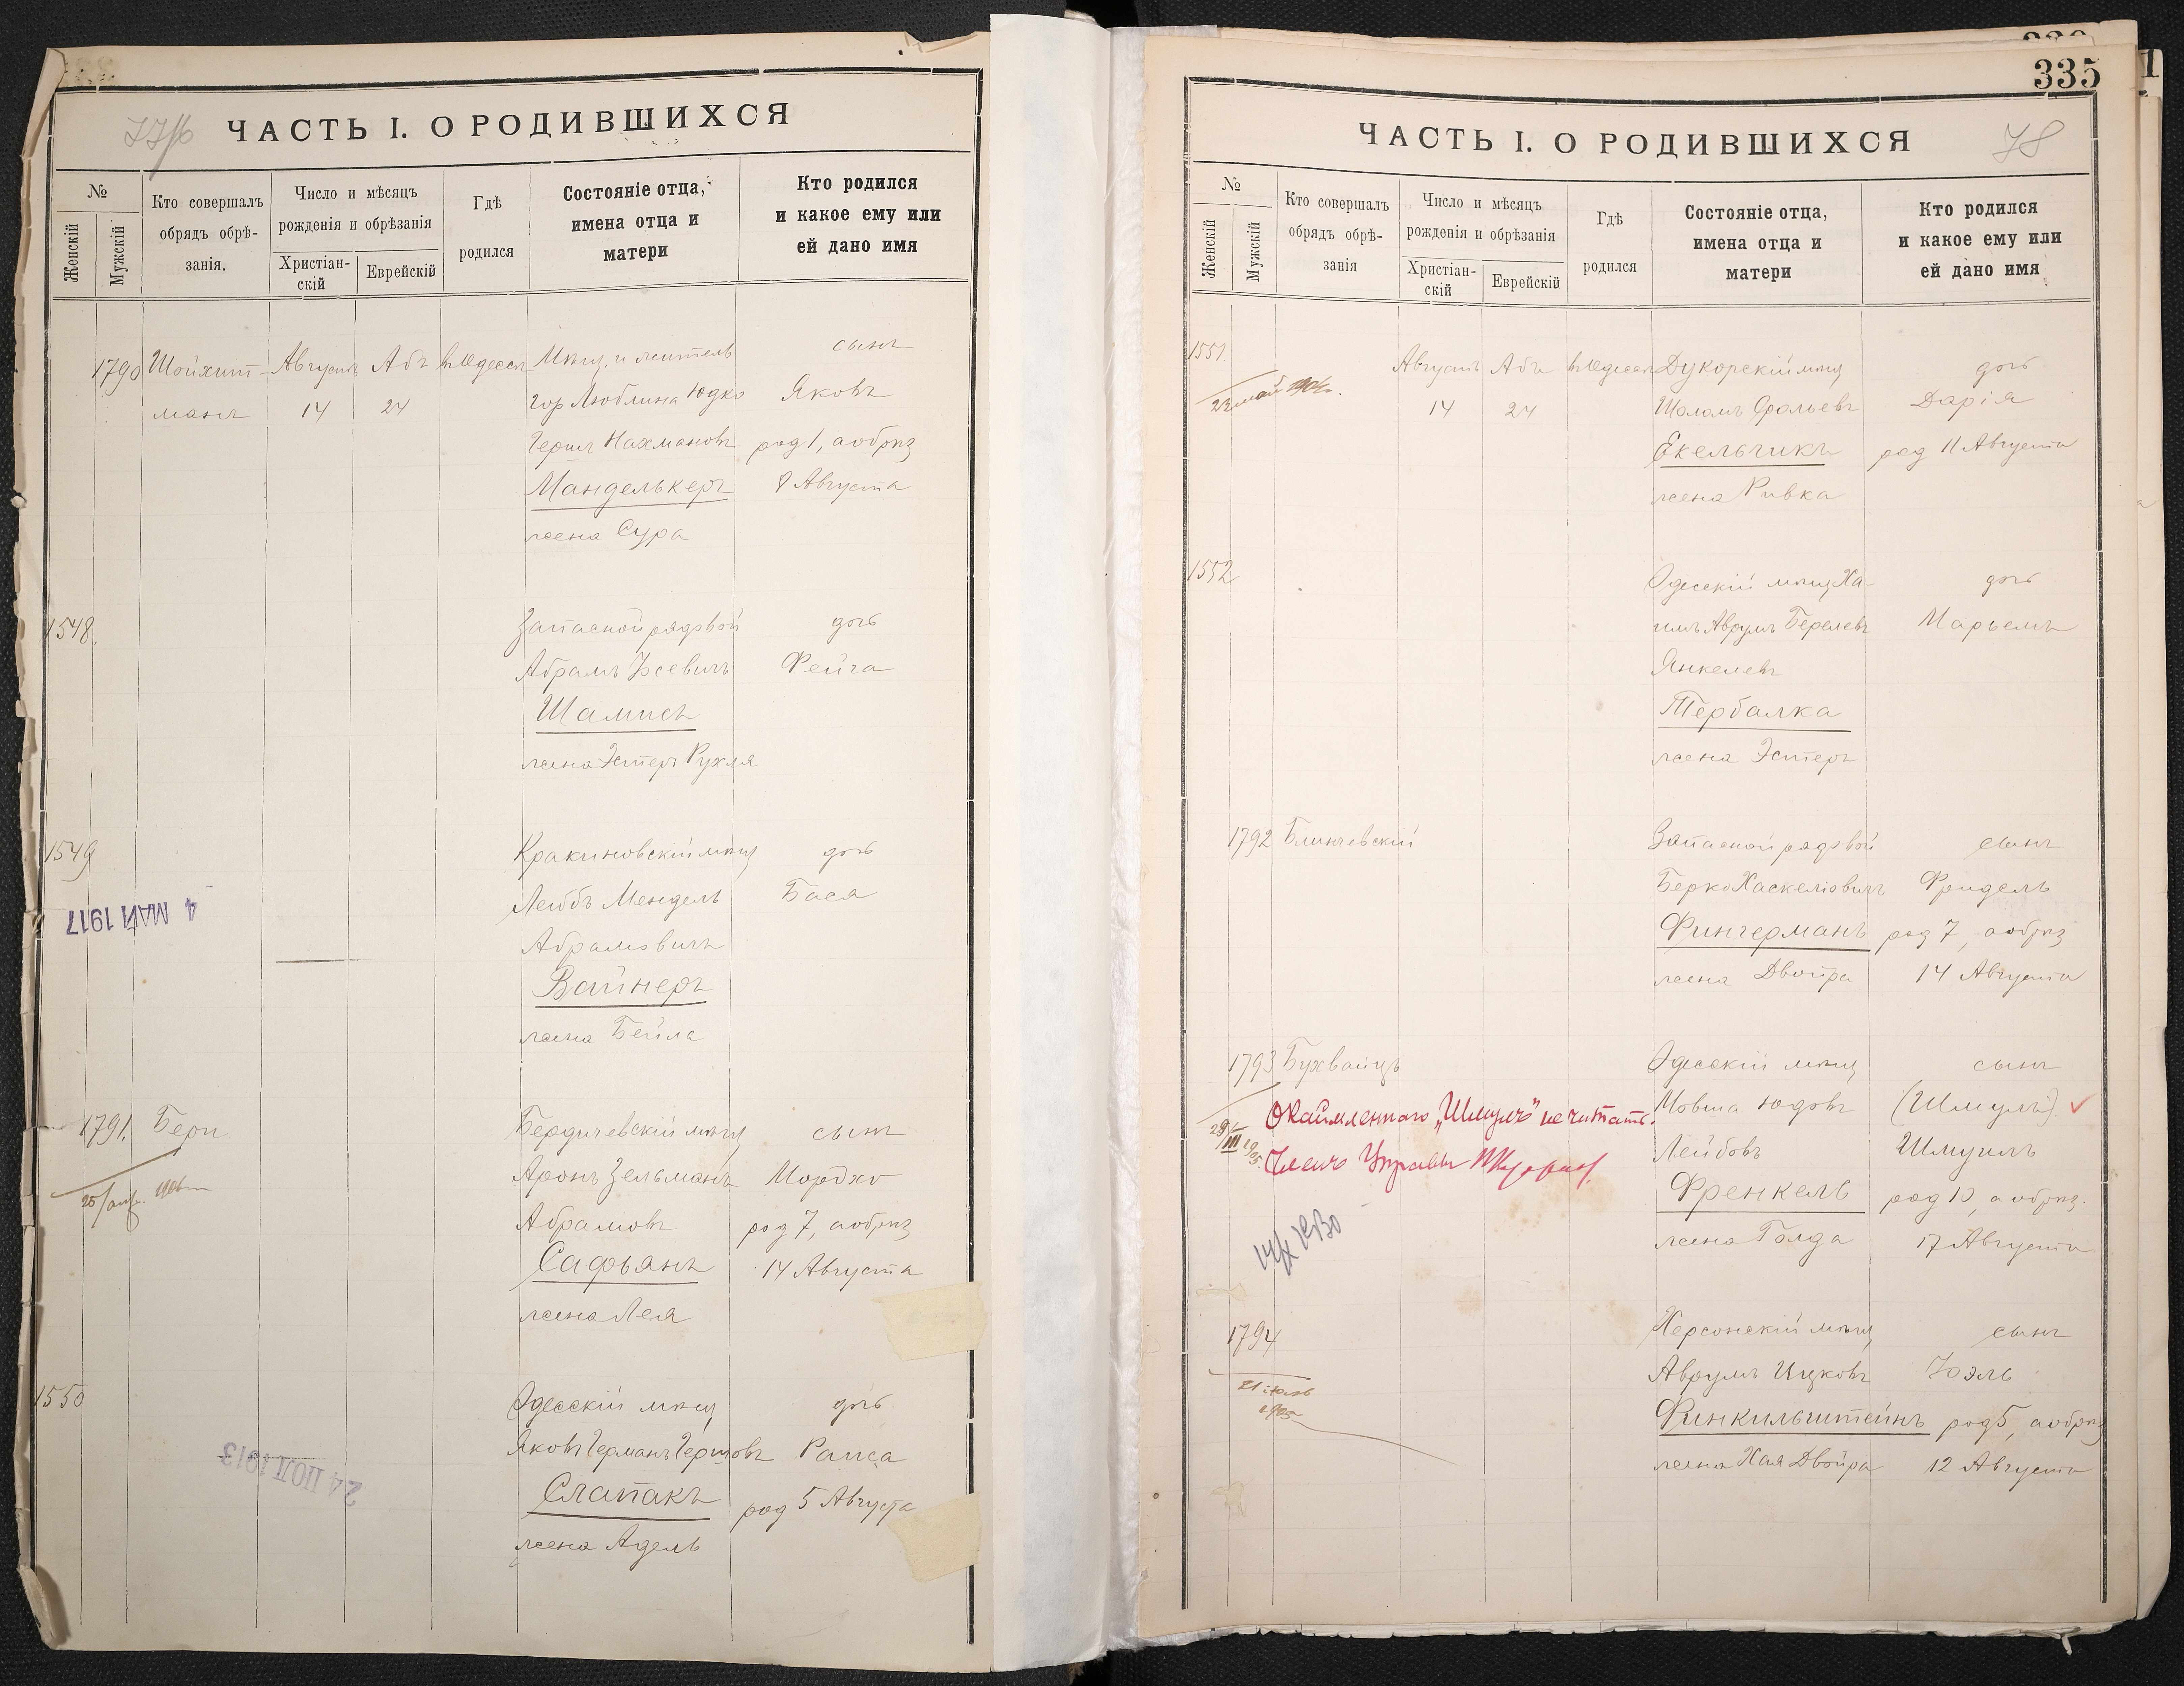 ЧАСТЬ I. О РОДИВШИХСЯ
№
Женскій
Мужскій
Кто совершалъ
обрядъ обрѣ-
занія.
Число и мѣсяцъ
рожденія и обрѣзанія
Христіан-
скій
Еврейскій
Гдѣ
родился
Состояніе отца,
имена отца и
матери
Кто родился
и какое ему или
ей дано имя
1790 Шойхит- Августъ Абъ въ Одессѣ Мѣщ. и житель сынъ
манъ 14 24 гор Люблина Юдко Яковъ
Гершъ Нахмановъ род 1, а обрѣз
Манделькеръ 8 Августа
жена Сура
1548. Запасной рядовой дочь
Абрамъ Іосевичъ Фейга
Шамисъ
жена Эстеръ Рухля
1549 Кракиновскій мѣщ дочь
Лейбъ Мендель Бася
4 МАЙ 1917
Абрамовичъ
Вайнеръ
жена Бейла
1791. Бери Бердичевскій мѣщ сынъ
Аронъ Зельманъ Мордхо
Абрамовъ род 7, а обрѣз
Сафьянъ 14 Августа
жена Лея
1550 Одесскій мѣщ дочь
Яковъ Германъ Гершовъ Раиса
24 ІЮЛ 1913
Слапакъ род 5 Августа
жена Адель
335
ЧАСТЬ I. О РОДИВШИХСЯ 78
№
Женскій
Мужскій
Кто совершалъ
обрядъ обрѣ-
занія
Число и мѣсяцъ
рожденія и обрѣзанія
Христіан-
скій
Еврейскій
Гдѣ
родился
Состояніе отца,
имена отца и
матери
Кто родился
и какое ему или
ей дано имя
1551 Августъ Абъ въ Одессѣ Дукорскій мѣщ дочь
14 24 Шоломъ Срольевъ Дарія
Екельчикъ род 11 Августа
жена Ривка
1552 Одесскій мѣщ Ха- дочь
имъ Аврумъ Берелевъ Марьемъ
Янкелевъ
Тербалка
жена Эстеръ
1792 Блинчевскій Запасной рядовой сынъ
Берко Хаскеліовичъ Фридель
Фингерманъ род 7, а обрѣз
жена Двойра 14 Августа
1793 Бухвайцъ Одесскій мѣщ сынъ
Окаймленнаго „Шмулъ" не читать. Мовша Юдовъ (Шмулъ)
Лейбовъ Шмуилъ
Членъ Управы
Френкель род 10, а обрѣз.
жена Голда 17 Августа
1794 Херсонскій мѣщ сынъ
Аврумъ Ицковъ Юэль
21 іюль
1905
Финкильштейнъ род 5, а обрѣз
жена Хая Двойра 12 Августа